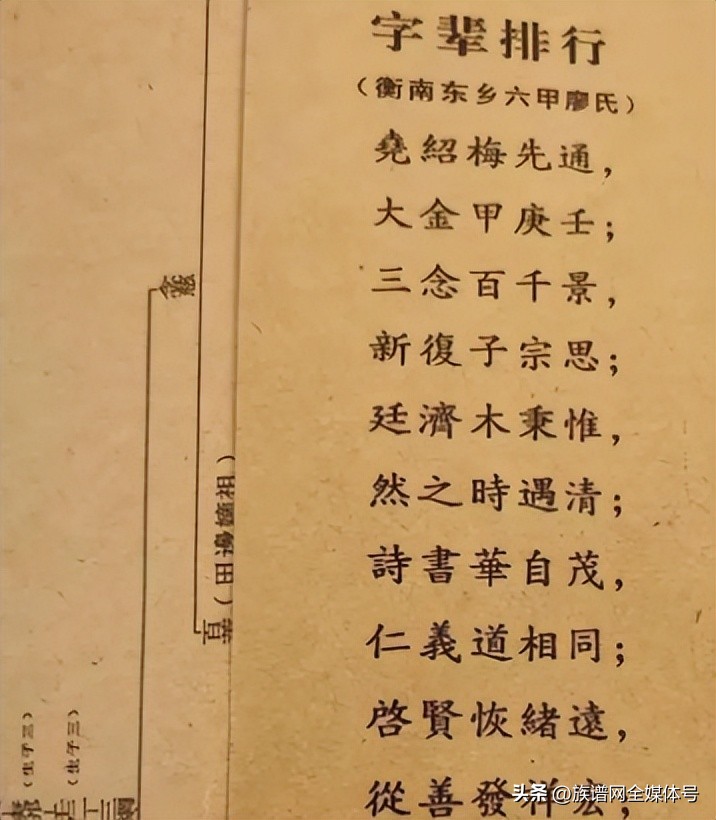 字辈排行
（衡南东乡六甲廖氏）
堯紹梅先通，
大金甲庚壬；
三念百千景，
新復子宗思；
廷濟木秉惟，
然之時遇清；
詩書華自茂，
仁義道相同；
啓賢恢緒遠，
從善發祥宏，
（田邊嫡祖）
（生子三）
（生子三）
头条 @族谱网全媒体号